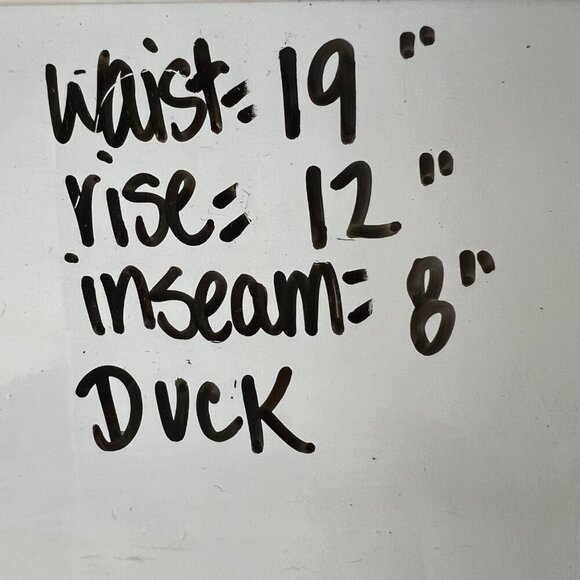 waist= 19"
rise= 12"
inseam= 8"
DUCK